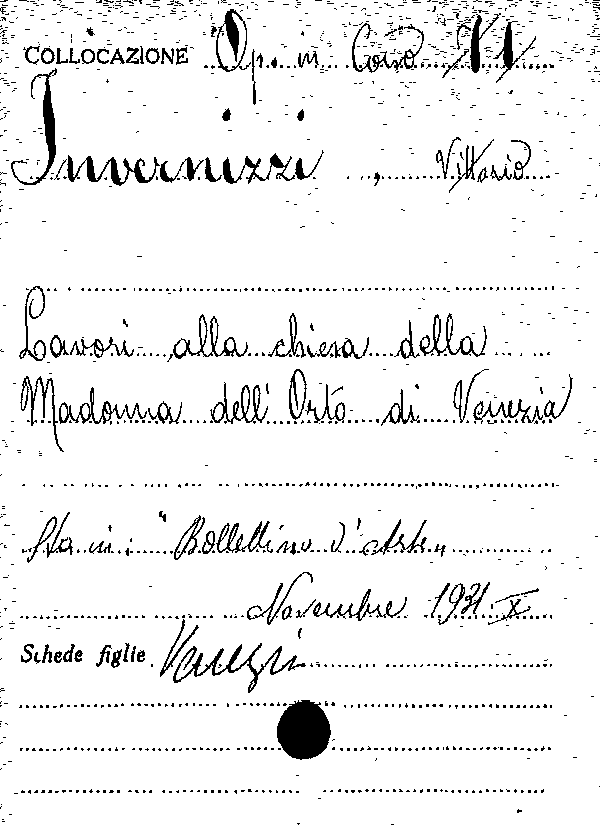 COLLOCAZIONE Op. in Corso XI
Invernizzi, Vittorio
Lavori alla chiesa della
Madonna dell' Orto di Venezia
Sta in: "Bollettino d'Arte„
Novembre 1931-X
Schede figlie Venezia